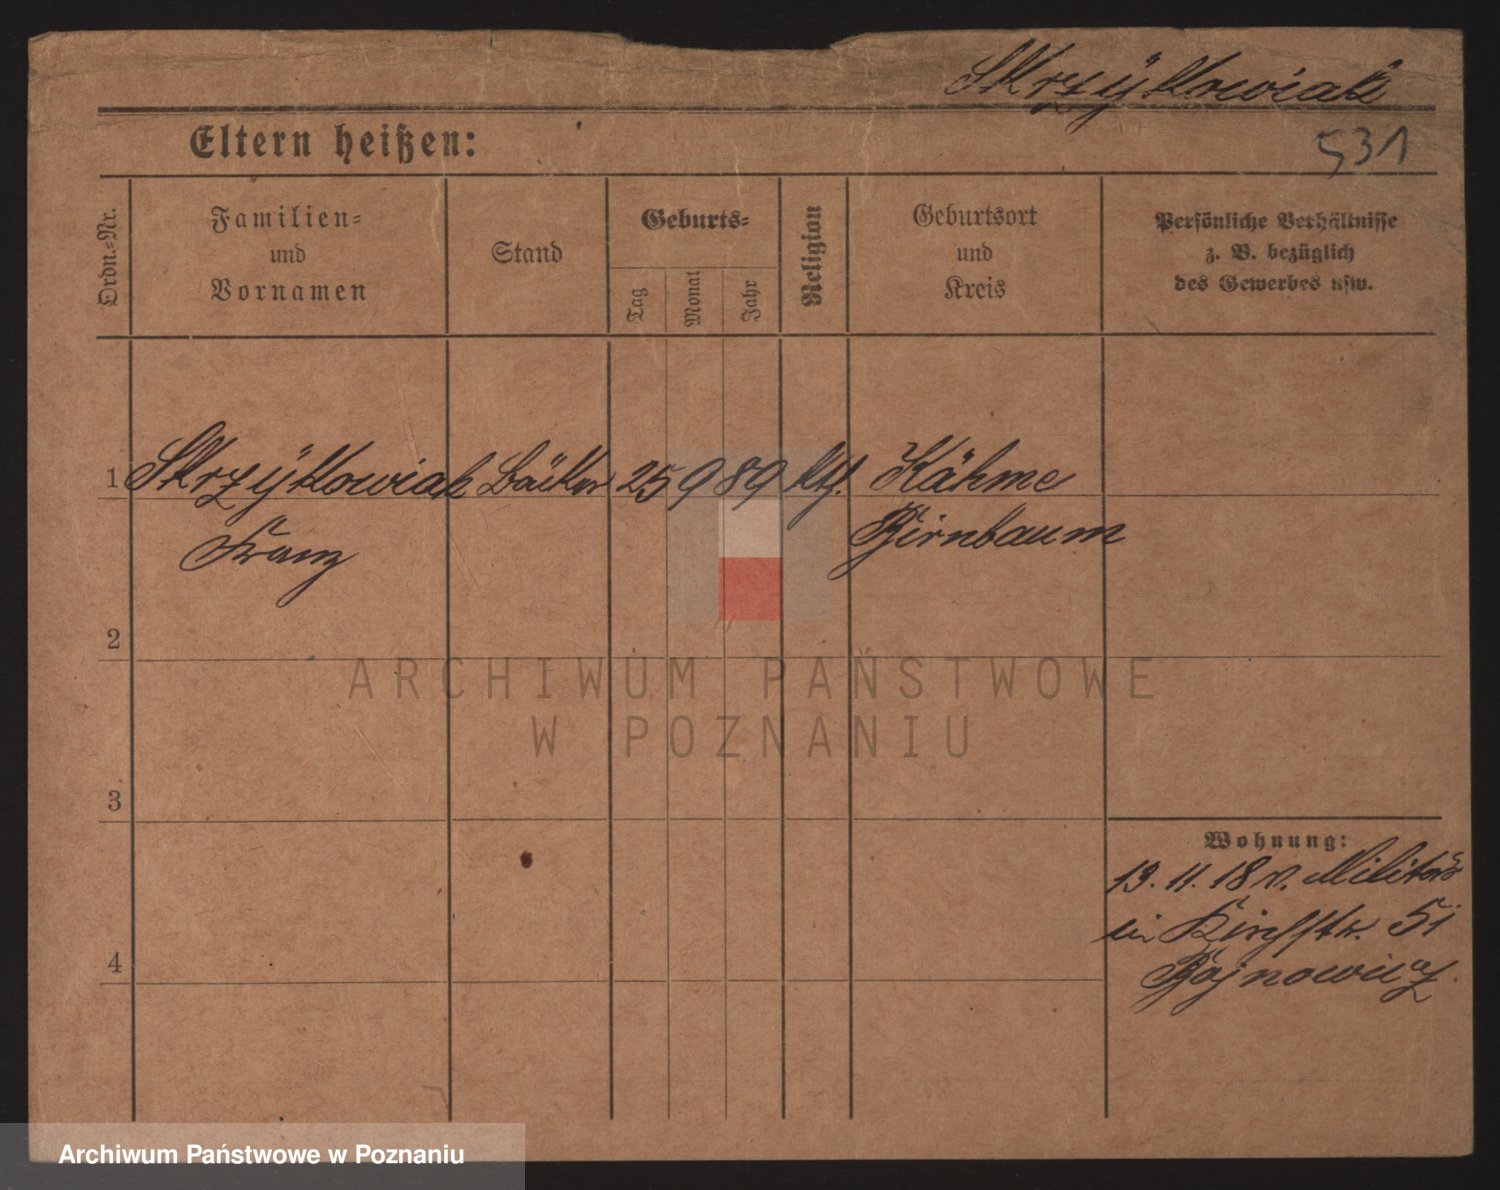 Skrzÿtkowiak
Eltern heißen:
531
Ordn.-Nr.
Familien-
und
Vornamen
Stand
Geburts-
Tag
Monat
Jahr
Religion
Geburtsort
und
Kreis
Persönliche Verhältnisse
z. B. bezüglich
des Gewerbes usw.
1 Skrzÿtkowiak Bäcker 25 9 89 kth. Kähme
Franz Birnbaum
2
ARCHIWUM PAŃSTWOWE
W POZNANIU
3
Wohnung:
13. 11. 18 v. Militär
in Kirchstr. 51
4
Archiwum Państwowe w Poznaniu